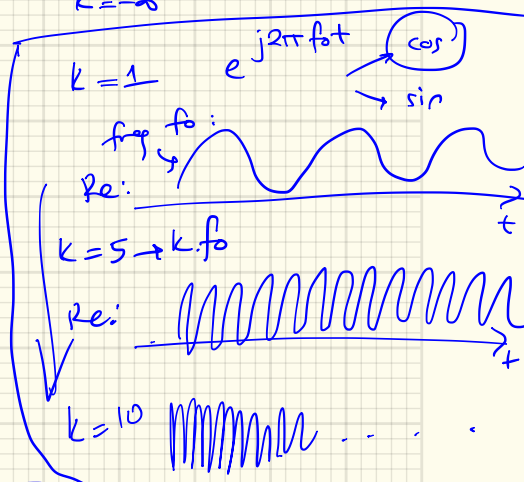 k=-∞
k=1 e^{j2πf₀t} cos
sin
freq f₀:
Re:
t
k=5→k.f₀
Re:
t
k=10 ....